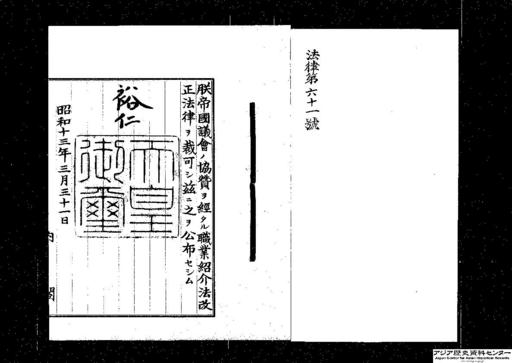 法律第六十一號
朕帝國議會ノ協贊ヲ經タル職業紹介法改
正法律ヲ裁可シ茲ニ之ヲ公布セシム
裕仁
天皇
御璽
昭和十三年三月三十一日
内閣
アジア歴史資料センター
Japan Center for Asian Historical Records